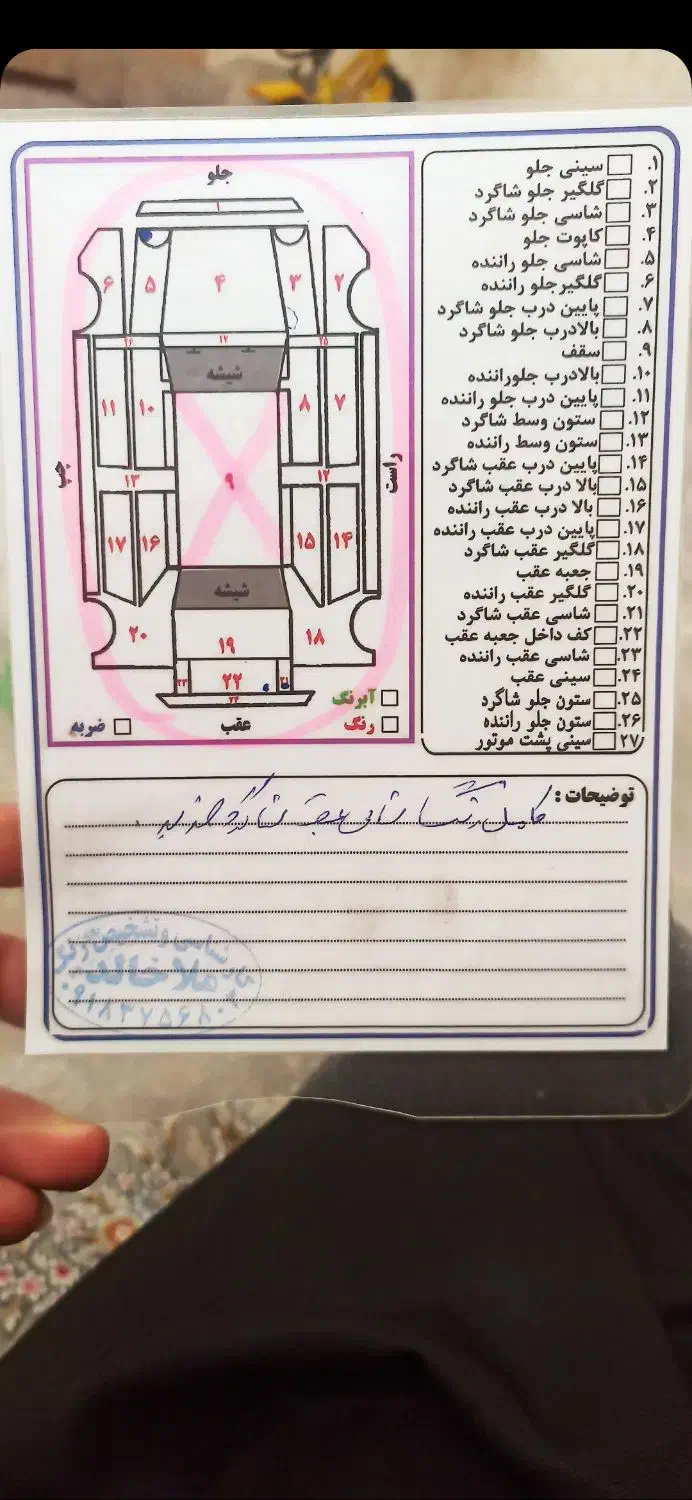 ۱. سینی جلو
۲. گلگیر جلو شاگرد
۳. شاسی جلو شاگرد
۴. کاپوت جلو
۵. شاسی جلو راننده
۶. گلگیرجلو راننده
۷. پایین درب جلو شاگرد
۸. بالادرب جلو شاگرد
۹. سقف
۱۰. بالادرب جلوراننده
۱۱. پایین درب جلو راننده
۱۲. ستون وسط شاگرد
۱۳. ستون وسط راننده
۱۴. پایین درب عقب شاگرد
۱۵. بالا درب عقب شاگرد
۱۶. بالا درب عقب راننده
۱۷. پایین درب عقب راننده
۱۸. گلگیر عقب شاگرد
۱۹. جعبه عقب
۲۰. گلگیر عقب راننده
۲۱. شاسی عقب شاگرد
۲۲. کف داخل جعبه عقب
۲۳. شاسی عقب راننده
۲۴. سینی عقب
۲۵. ستون جلو شاگرد
۲۶. ستون جلو راننده
۲۷. سینی پشت موتور
جلو
۱
۶ ۵ ۴ ۳ ۲
۲۶ ۱۷ ۲۵
شیشه
۱۱ ۱۰ ۸ ۷
چپ
راست
۹
۱۳ ۱۲
۱۷ ۱۶ ۱۵ ۱۴
شیشه
۲۰ ۱۹ ۱۸
۲۳ ۲۲ ۲۱
۲۴
آبرنگ
رنگ
عقب
ضربه
توضیحات :
کامل رنگ شاسی عقب شاگرد ضربه
کارشناسی و تشخیص رنگ
ملا خالد